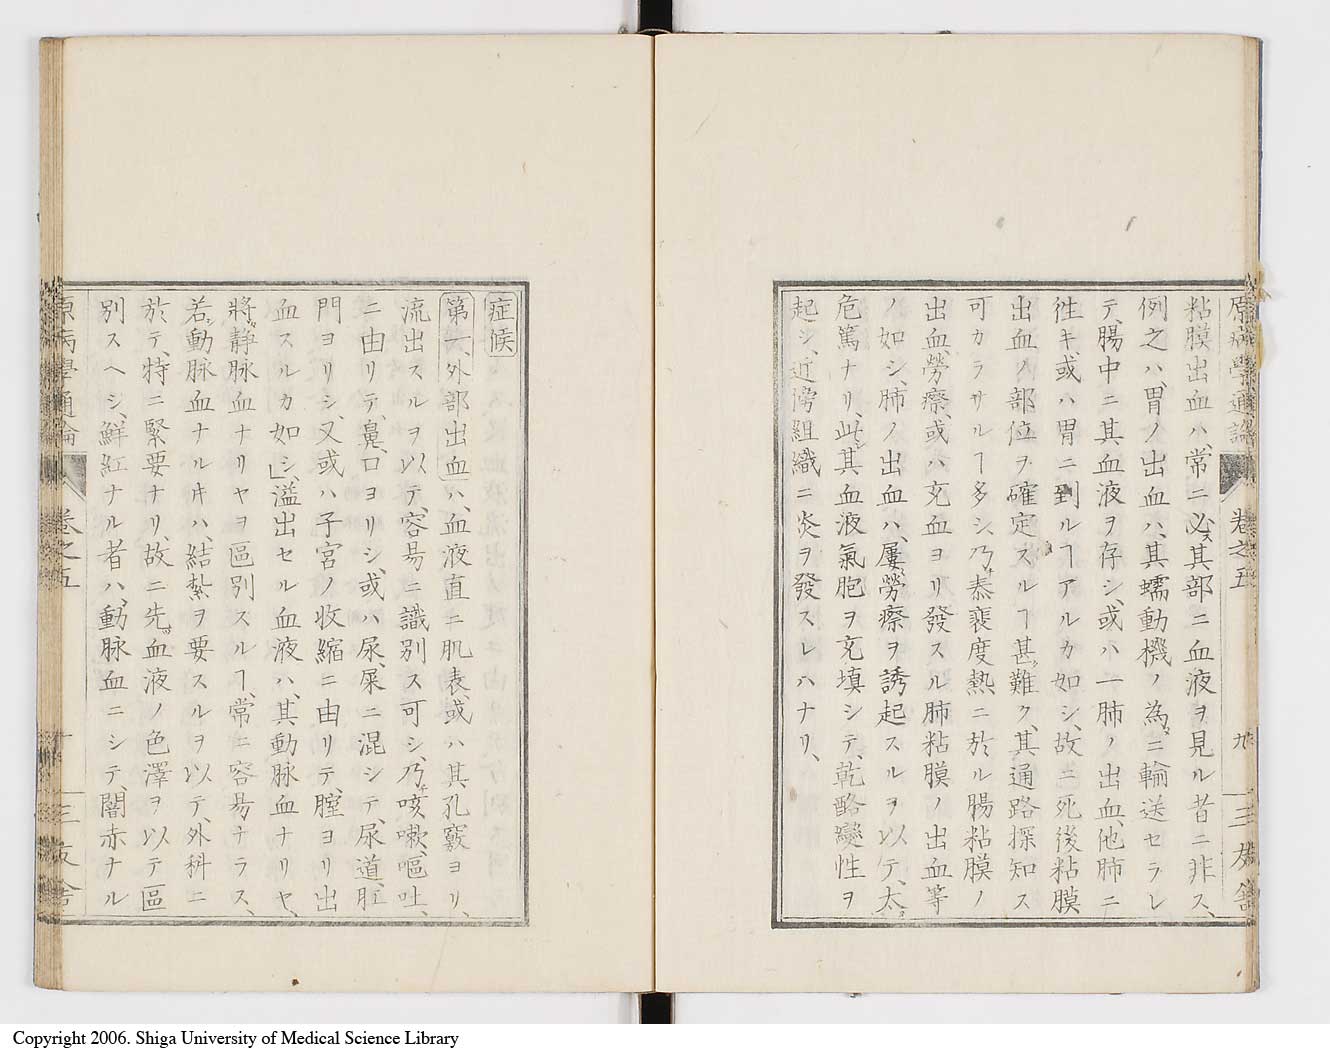 原病學通論 卷之五 九 三友舎
粘膜出血ハ、常ニ必ス其部ニ血液ヲ見ル者ニ非ス、
例之ハ、胃ノ出血ハ、其蠕動機ノ為メニ輸送セラレ
テ、腸中ニ其血液ヲ存シ、或ハ一肺ノ出血、他肺ニ
徃キ、或ハ胃ニ到ルヿアルカ如シ、故ニ死後粘膜
出血ノ部位ヲ確定スルヿ甚タ難ク、其通路探知ス
可カラサルヿ多シ、乃チ泰裴度熱ニ於ル腸粘膜ノ
出血、勞瘵、或ハ充血ヨリ發スル肺粘膜ノ出血等
ノ如シ、肺ノ出血ハ、屢勞瘵ヲ誘起スルヲ以テ、太タ
危篤ナリ、此レ其血液氣胞ヲ充填シテ、乾酪變性ヲ
起シ、近傍組織ニ炎ヲ發スレハナリ、
症候
第一、外部出血ハ、血液直ニ肌表、或ハ其孔竅ヨリ、
流出スルヲ以テ、容易ニ識別ス可シ、乃チ咳嗽、嘔吐、
ニ由リテ、鼻、口ヨリシ、或ハ尿、屎ニ混シテ、尿道、肛
門ヨリシ、又或ハ子宮ノ收縮ニ由リテ、膣ヨリ出
血スルカ如シ」溢出セル血液ハ、其動脉血ナリヤ、
將タ静脉血ナリヤヲ區別スルヿ、常ニ容易ナラス、
若シ動脉血ナル片ハ、結紮ヲ要スルヲ以テ、外科ニ
於テ、特ニ緊要ナリ、故ニ先ツ血液ノ色澤ヲ以テ區
別スヘシ、鮮紅ナル者ハ、動脉血ニシテ、闇赤ナル
原病學通論 卷之五 三友舎
Copyright 2006. Shiga University of Medical Science Library